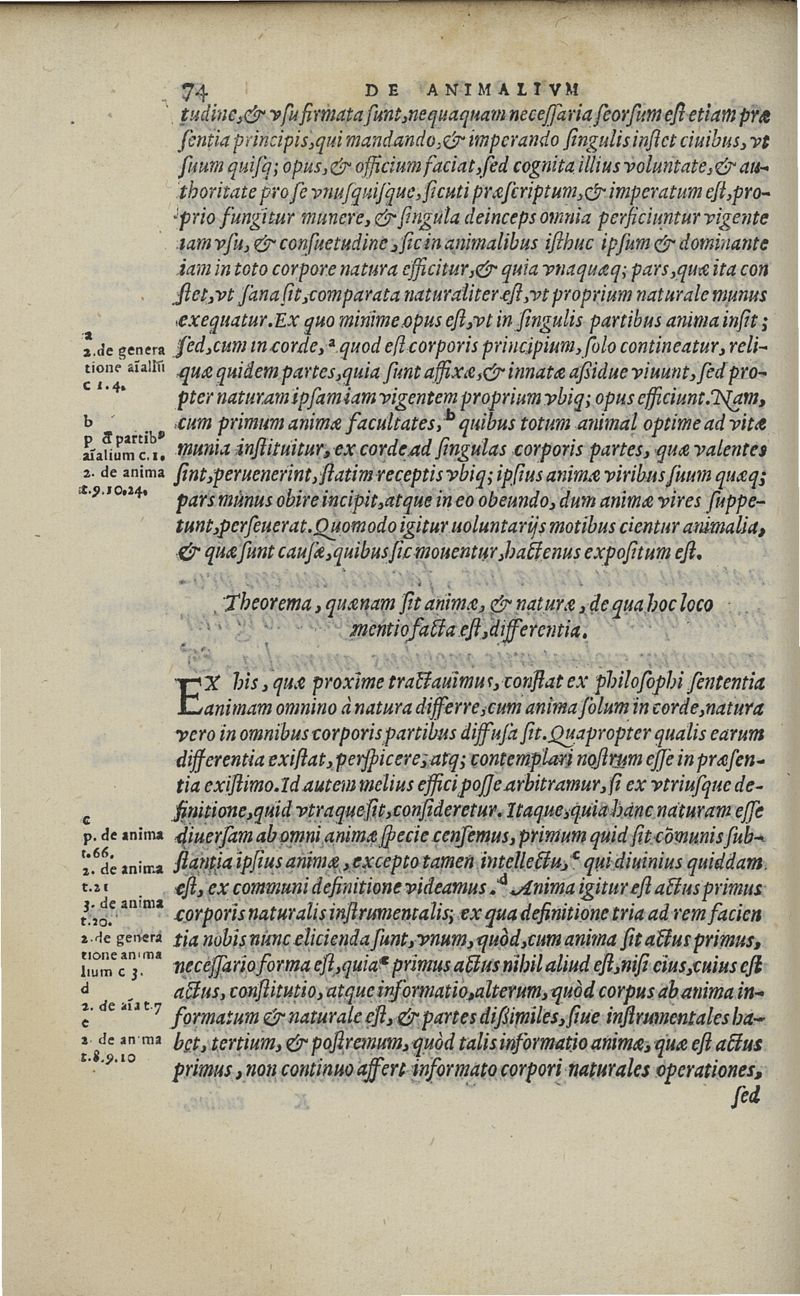 74 DE ANIMALIVM
tudine,& vſu firmata ſunt,nequaquam neceſſaria ſeorſum eſt etiam præ
ſentia principis,qui mandando,& imperando ſingulis inſtet ciuibus, vt
ſuum quiſq; opus,& officium faciat,ſed cognita illius voluntate,& au-
thoritate pro ſe vnuſquiſque,ſicuti præſcriptum,& imperatum eſt,pro-
prio fungitur munere, & ſingula deinceps omnia perficiuntur vigente
iam vſu, & conſuetudine, ſic in animalibus iſthuc ipſum & dominante
iam in toto corpore natura efficitur,& quia vnaquæq; pars,quæ ita con
ſtet,vt ſana ſit,comparata naturaliter eſt,vt proprium naturale munus
exequatur.Ex quo minime opus eſt,vt in ſingulis partibus anima inſit;
ſed,cum in corde, a quod eſt corporis principium, ſolo contineatur, reli-
quæ quidem partes,quia ſunt affixæ,& innatæ aßidue viuunt, ſed pro-
pter naturam ipſam iam vigentem proprium vbiq; opus efficiunt.Nam,
cum primum animæ facultates, b quibus totum animal optime ad vitæ
munia inſtituitur, ex corde ad ſingulas corporis partes, quæ valentes
ſint,peruenerint,ſtatim receptis vbiq; ipſius animæ viribus ſuum quæq;
pars munus obire incipit,atque in eo obeundo, dum animæ vires ſuppe-
tunt,perſeuerat.Quomodo igitur uoluntarijs motibus cientur animalia,
& quæ ſunt cauſæ,quibus ſic mouentur,hactenus expoſitum eſt.
a
2.de genera
tione aĩaliũ
c 1.4.
b
p đ partibꝰ
aĩalium c.1.
2. de anima
t.9.10.24.
Theorema, quænam ſit animæ, & naturæ, de qua hoc loco
mentio facta eſt,differentia.
EX his, quæ proxime tractauimus, conſtat ex philoſophi ſententia
animam omnino à natura differre,cum anima ſolum in corde,natura
vero in omnibus corporis partibus diffuſa ſit.Quapropter qualis earum
differentia exiſtat, perſpicere, atq; contemplari noſtrum eſſe in præſen-
tia exiſtimo.Id autem melius effici poſſe arbitramur, ſi ex vtriuſque de-
finitione,quid vtraque ſit,conſideretur. Itaque,quia hanc naturam eſſe
diuerſam ab omni animæ ſpecie cenſemus, primum quid ſit cõmunis ſub-
ſtantia ipſius animæ, excepto tamen intellectu, c qui diuinius quiddam
eſt, ex communi definitione videamus. d Anima igitur eſt actus primus
corporis naturalis inſtrumentalis; ex qua definitione tria ad rem facien
tia nobis nunc elicienda ſunt, vnum, quòd,cum anima ſit actus primus,
neceſſario forma eſt,quia e primus actus nihil aliud eſt,niſi eius,cuius eſt
actus, conſtitutio, atque informatio,alterum, quòd corpus ab anima in-
formatum & naturale eſt, & partes dißimiles, ſiue inſtrumentales ha-
bet, tertium, & poſtremum, quòd talis informatio animæ, quæ eſt actus
primus, non continuo affert informato corpori naturales operationes,
ſed
c
p. de anima
t.66.
2. de anima
t.21
3. de anima
t.20.
2.de genera
tione anima
lium c 3.
d
2. de aĩa t.7
e
2 de anima
t.8.9.10